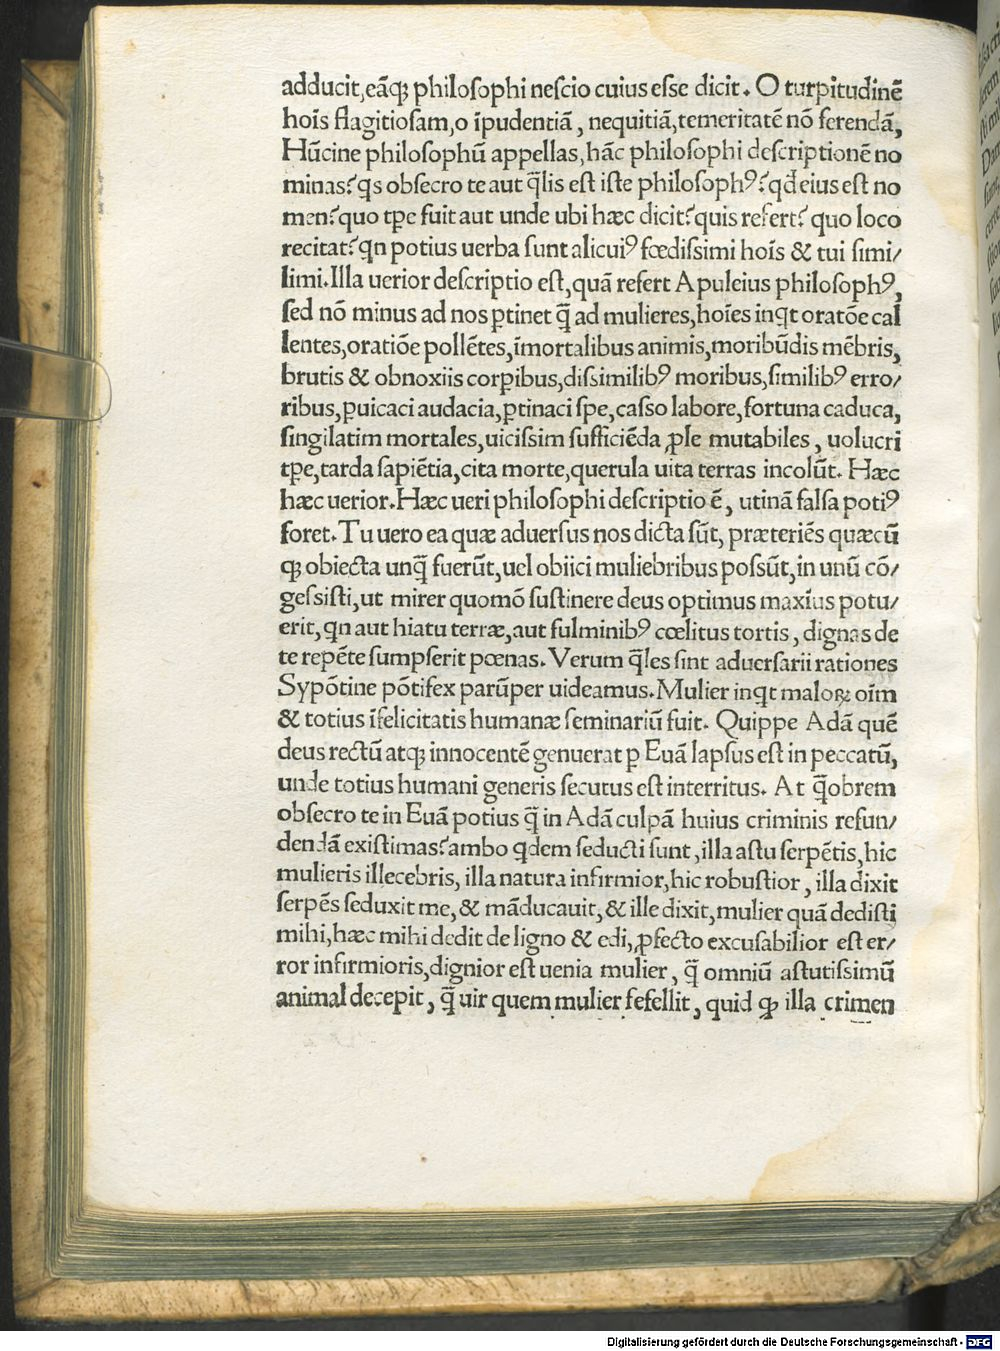 adducit,eãqꝫ philoſophi neſcio cuius eſſe dicit. O turpitudinẽ
hoĩs flagitioſam,o ĩpudentiã, nequitiã,temeritatẽ nõ ferendã,
Hũcine philoſophũ appellas,hãc philoſophi deſcriptionẽ no
minas?qͥs obſecro te aut q̃lis eſt iſte philoſophꝰ?qd̃ eius eſt no
men?quo tꝑe fuit aut unde ubi hæc dicit?quis refert? quo loco
recitat?qn potius uerba ſunt alicuiꝰ fœdiſſimi hoĩs & tui ſimi/
limi.Illa uerior deſcriptio eſt,quã refert Apuleius philoſophꝰ,
ſed nõ minus ad nos ꝑtinet q̃ ad mulieres,hoĩes inqͥt oratõe cal
lentes,oratiõe pollẽtes,ĩmortalibus animis,moribũdis mẽbris,
brutis & obnoxiis corꝑibus,diſſimilibꝰ moribus,ſimilibꝰ erro/
ribus,ꝑuicaci audacia,ꝑtinaci ſpe,caſſo labore,fortuna caduca,
ſingilatim mortales,uiciſſim ſufficiẽda ꝓle mutabiles, uolucri
tꝑe,tarda ſapiẽtia,cita morte,querula uita terras incolũt. Hæc
hæc uerior.Hæc ueri philoſophi deſcriptio ẽ, utinã falſa potiꝰ
foret.Tu uero ea quæ aduerſus nos dicta ſũt, præteriẽs quæcũ
qꝫ obiecta unq̃ fuerũt,uel obiici muliebribus poſſũt,in unũ cõ/
geſſiſti,ut mirer quomõ ſuſtinere deus optimus maxĩus potu/
erit,qn aut hiatu terræ,aut fulminibꝰ cœlitus tortis, dignas de
te repẽte ſumpſerit pœnas.Verum q̃les ſint aduerſarii rationes
Sypõtine põtifex parũper uideamus.Mulier inqͥt maloꝝ oĩm
& totius ĩfelicitatis humanæ ſeminariũ fuit. Quippe Adã quẽ
deus rectũ atqꝫ innocentẽ genuerat ꝑ Euã lapſus eſt in peccatũ,
unde totius humani generis ſecutus eſt interritus. At q̃obrem
obſecro te in Euã potius q̃ in Adã culpã huius criminis refun/
dendã exiſtimas?ambo qͥdem ſeducti ſunt,illa aſtu ſerpẽtis,hic
mulieris illecebris, illa natura infirmior,hic robuſtior, illa dixit
ſerpẽs ſeduxit me,& mãducauit,& ille dixit,mulier quã dediſti
mihi,hæc mihi dedit de ligno & edi,ꝓfecto excuſabilior eſt er/
ror infirmioris,dignior eſt uenia mulier, q̃ omniũ aſtutiſſimũ
animal decepit, q̃ uir quem mulier fefellit, quid qꝫ illa crimen
Digitalisierung gefördert durch die Deutsche Forschungsgemeinschaft - DFG